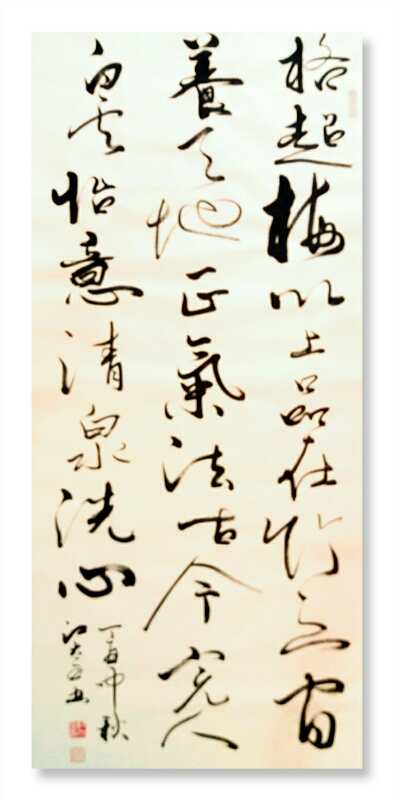 格超梅以上品在竹之間
養天地正氣法古今完人
白云怡意清泉洗心
丁酉仲秋
書